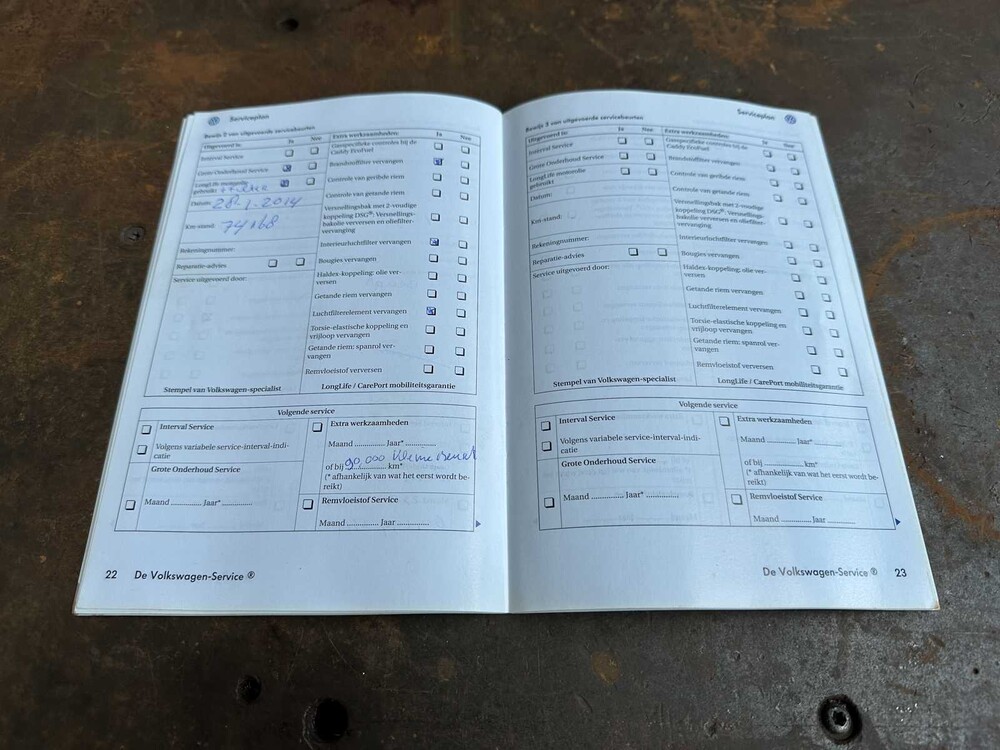 Serviceplan
Bewijs 2 van uitgevoerde servicebeurten
Uitgevoerd is: Ja Nee
Interval Service
Grote Onderhoud Service
LongLife motorolie
gebruikt
Datum: 28-1-2014
Km-stand: 74168
Rekeningnummer:
Reparatie-advies
Service uitgevoerd door:
Stempel van Volkswagen-specialist
Extra werkzaamheden: Ja Nee
Gasspecifieke controles bij de
Caddy EcoFuel
Brandstoffilter vervangen
Controle van geribde riem
Controle van getande riem
Versnellingsbak met 2-voudige
koppeling DSG®: Versnellings-
bakolie verversen en oliefilter-
vervanging
Interieurluchtfilter vervangen
Bougies vervangen
Haldex-koppeling: olie ver-
versen
Getande riem vervangen
Luchtfilterelement vervangen
Torsie-elastische koppeling en
vrijloop vervangen
Getande riem: spanrol ver-
vangen
Remvloeistof verversen
LongLife / CarePort mobiliteitsgarantie
Volgende service
Interval Service
Volgens variabele service-interval-indi-
catie
Grote Onderhoud Service
Maand ............. Jaar* .............
Extra werkzaamheden
Maand ............. Jaar* .............
of bij 90.000 km*
(* afhankelijk van wat het eerst wordt be-
reikt)
Remvloeistof Service
Maand ............. Jaar .............
22 De Volkswagen-Service ®
Serviceplan
Bewijs 3 van uitgevoerde servicebeurten
Uitgevoerd is: Ja Nee
Interval Service
Grote Onderhoud Service
LongLife motorolie
gebruikt
Datum:
Km-stand:
Rekeningnummer:
Reparatie-advies
Service uitgevoerd door:
Stempel van Volkswagen-specialist
Extra werkzaamheden: Ja Nee
Gasspecifieke controles bij de
Caddy EcoFuel
Brandstoffilter vervangen
Controle van geribde riem
Controle van getande riem
Versnellingsbak met 2-voudige
koppeling DSG®: Versnellings-
bakolie verversen en oliefilter-
vervanging
Interieurluchtfilter vervangen
Bougies vervangen
Haldex-koppeling: olie ver-
versen
Getande riem vervangen
Luchtfilterelement vervangen
Torsie-elastische koppeling en
vrijloop vervangen
Getande riem: spanrol ver-
vangen
Remvloeistof verversen
LongLife / CarePort mobiliteitsgarantie
Volgende service
Interval Service
Volgens variabele service-interval-indi-
catie
Grote Onderhoud Service
Maand ............. Jaar* .............
Extra werkzaamheden
Maand ............. Jaar* .............
of bij ............. km*
(* afhankelijk van wat het eerst wordt be-
reikt)
Remvloeistof Service
Maand ............. Jaar .............
De Volkswagen-Service ® 23